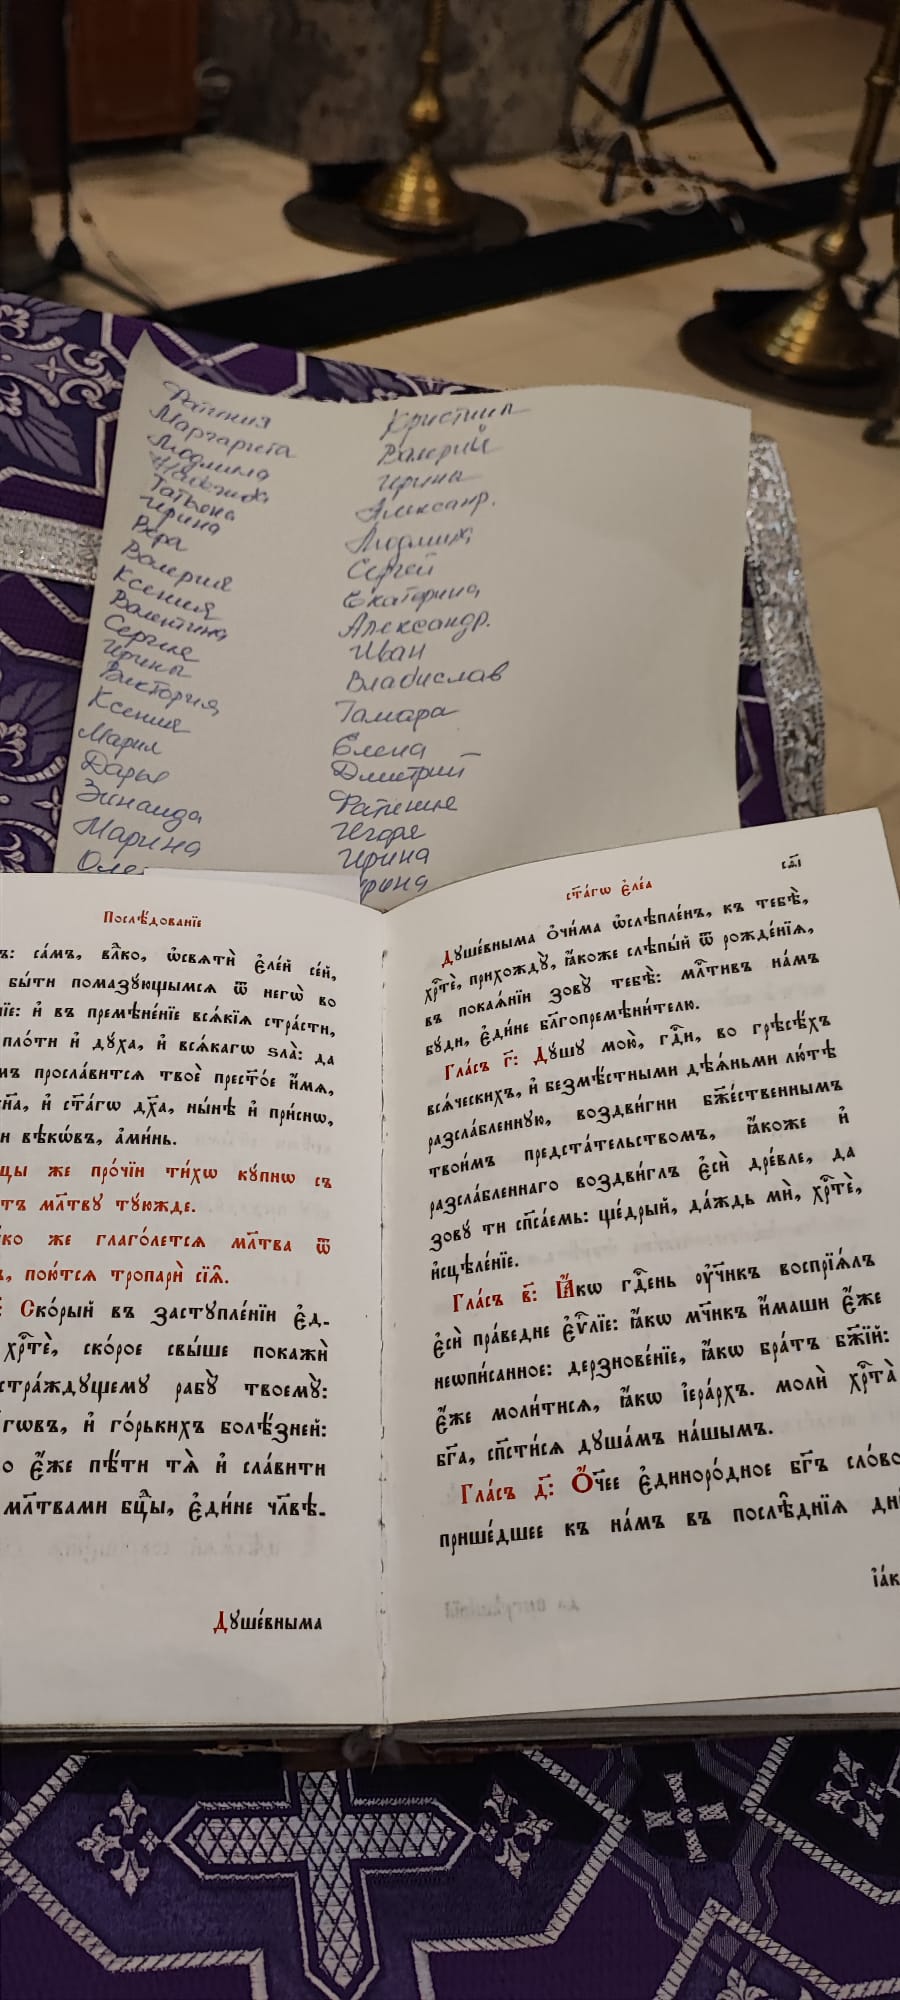 Маргарита
Людмила
Надежда
Татьяна
Ирина
Вера
Валерия
Ксения
Валентина
Сергия
Ирины
Виктория
Ксения
Мария
Дарья
Зинаида
Марина
Кристина
Валерий
Ирина
Александр.
Людмила
Сергей
Екатерина
Александр.
Иван
Владислав
Тамара
Елена
Дмитрий
Игоря
Ирина
Послѣ́дованїе
са́мъ, влⷣко, ѡ҆свѧтѝ є҆ле́й се́й,
бы́ти помазꙋющымсѧ ѿ негѡ̀ во
и҆ въ премѣне́нїе всѧ́кїѧ стра́сти,
пло́ти и҆ дꙋ́ха, и҆ всѧ́кагѡ ѕла̀: да
просла́витсѧ твоѐ прест҃о́е и҆́мѧ,
и҆ ст҃а́гѡ дх҃а, ны́нѣ и҆ при́снѡ,
вѣкѡ́въ, а҆ми́нь.
же про́чїи ти́хѡ кꙋ́пнѡ съ
мл҃твꙋ тꙋ́южде.
же глаго́летсѧ мл҃тва ѿ
пою́тсѧ тропарѝ сїѧ̑.
Ско́рый въ застꙋпле́нїи є҆д-
хрⷭ҇тѐ, ско́рое свы́ше покажѝ
стра́ждꙋщемꙋ рабꙋ̀ твоемꙋ̀:
и҆ го́рькихъ болѣ́зней:
є҆́же пѣ́ти тѧ̀ и҆ сла́вити
мл҃твами бцⷣы, є҆ди́не чл҃вѣ-
Дꙋше́вныма
ст҃а́гѡ є҆ле́а
сѕ҃і
Дꙋше́вныма ѻ҆чи́ма ѡ҆слѣпле́нъ, къ тебѣ̀,
хрⷭ҇тѐ, прихождꙋ̀, ꙗ҆́коже слѣпы́й ѿ рожде́нїѧ,
въ покаѧ́нїи зовꙋ̀ тебѣ̀: млⷭ҇тивъ на́мъ
бꙋ́ди, є҆ди́не бл҃гопремѣни́телю.
Гла́съ г҃: Дꙋ́шꙋ мою̀, гдⷭ҇и, во грѣсѣ́хъ
всѧ́ческихъ, и҆ безмѣ́стными дѣѧ́ньми лю́тѣ
разсла́бленнꙋю, воздви́гни бж҃е́ственнымъ
твои́мъ предста́тельствомъ, ꙗ҆́коже и҆
разсла́бленнаго воздви́глъ є҆сѝ дре́вле, да
зовꙋ́ ти сп҃са́емь: ще́дрый, да́ждь мѝ, хрⷭ҇тѐ,
и҆сцѣле́нїе.
Гла́съ в҃: Ꙗ҆́кѡ гдⷭ҇ень ᲂу҆чн҃къ воспрїѧ́лъ
є҆сѝ пра́ведне є҆ѵⷢ҇лїе: ꙗ҆́кѡ мч҃нкъ и҆́маши є҆́же
неѡпи́санное: дерзнове́нїе, ꙗ҆́кѡ бра́тъ бж҃їй:
є҆́же моли́тисѧ, ꙗ҆́кѡ і҆ера́рхъ. молѝ хрⷭ҇та̀
бг҃а, сп҃сти́сѧ дꙋша́мъ на́шымъ.
Гла́съ д҃: Ѻ҆́ч҃ее є҆диноро́дное бг҃ъ сло́во
прише́дшее къ на́мъ въ послѣ̑днїѧ